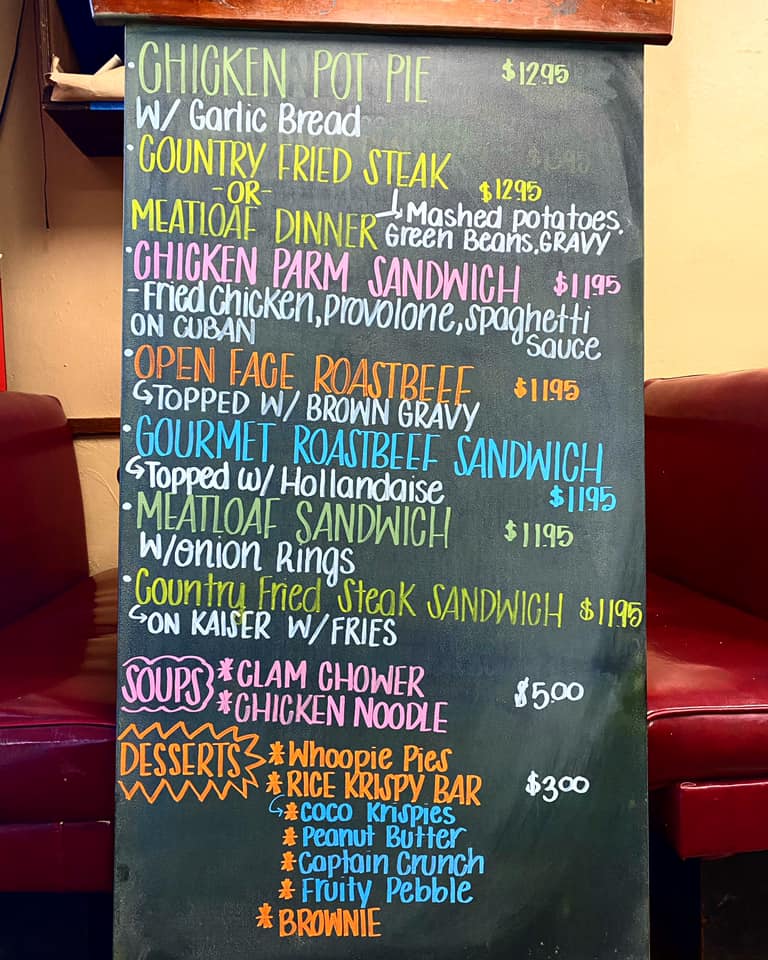 ·CHICKEN POT PIE $12.95
W/ Garlic Bread
·COUNTRY FRIED STEAK $12.95
-OR-
MEATLOAF DINNER ↳Mashed potatoes,
Green Beans, GRAVY
·CHICKEN PARM SANDWICH $11.95
-Fried Chicken, provolone, spaghetti
sauce
ON CUBAN
·OPEN FACE ROASTBEEF $11.95
↳TOPPED W/ BROWN GRAVY
·GOURMET ROASTBEEF SANDWICH
↳Topped w/ Hollandaise $11.95
·MEATLOAF SANDWICH $11.95
W/onion Rings
·Country Fried Steak SANDWICH $11.95
↳ON KAISER W/FRIES
SOUPS *CLAM CHOWER $5.00
*CHICKEN NOODLE
DESSERTS *Whoopie Pies
*RICE KRISPY BAR $3.00
↳*COCO Krispies
*Peanut Butter
*Captain Crunch
*Fruity Pebble
*BROWNIE